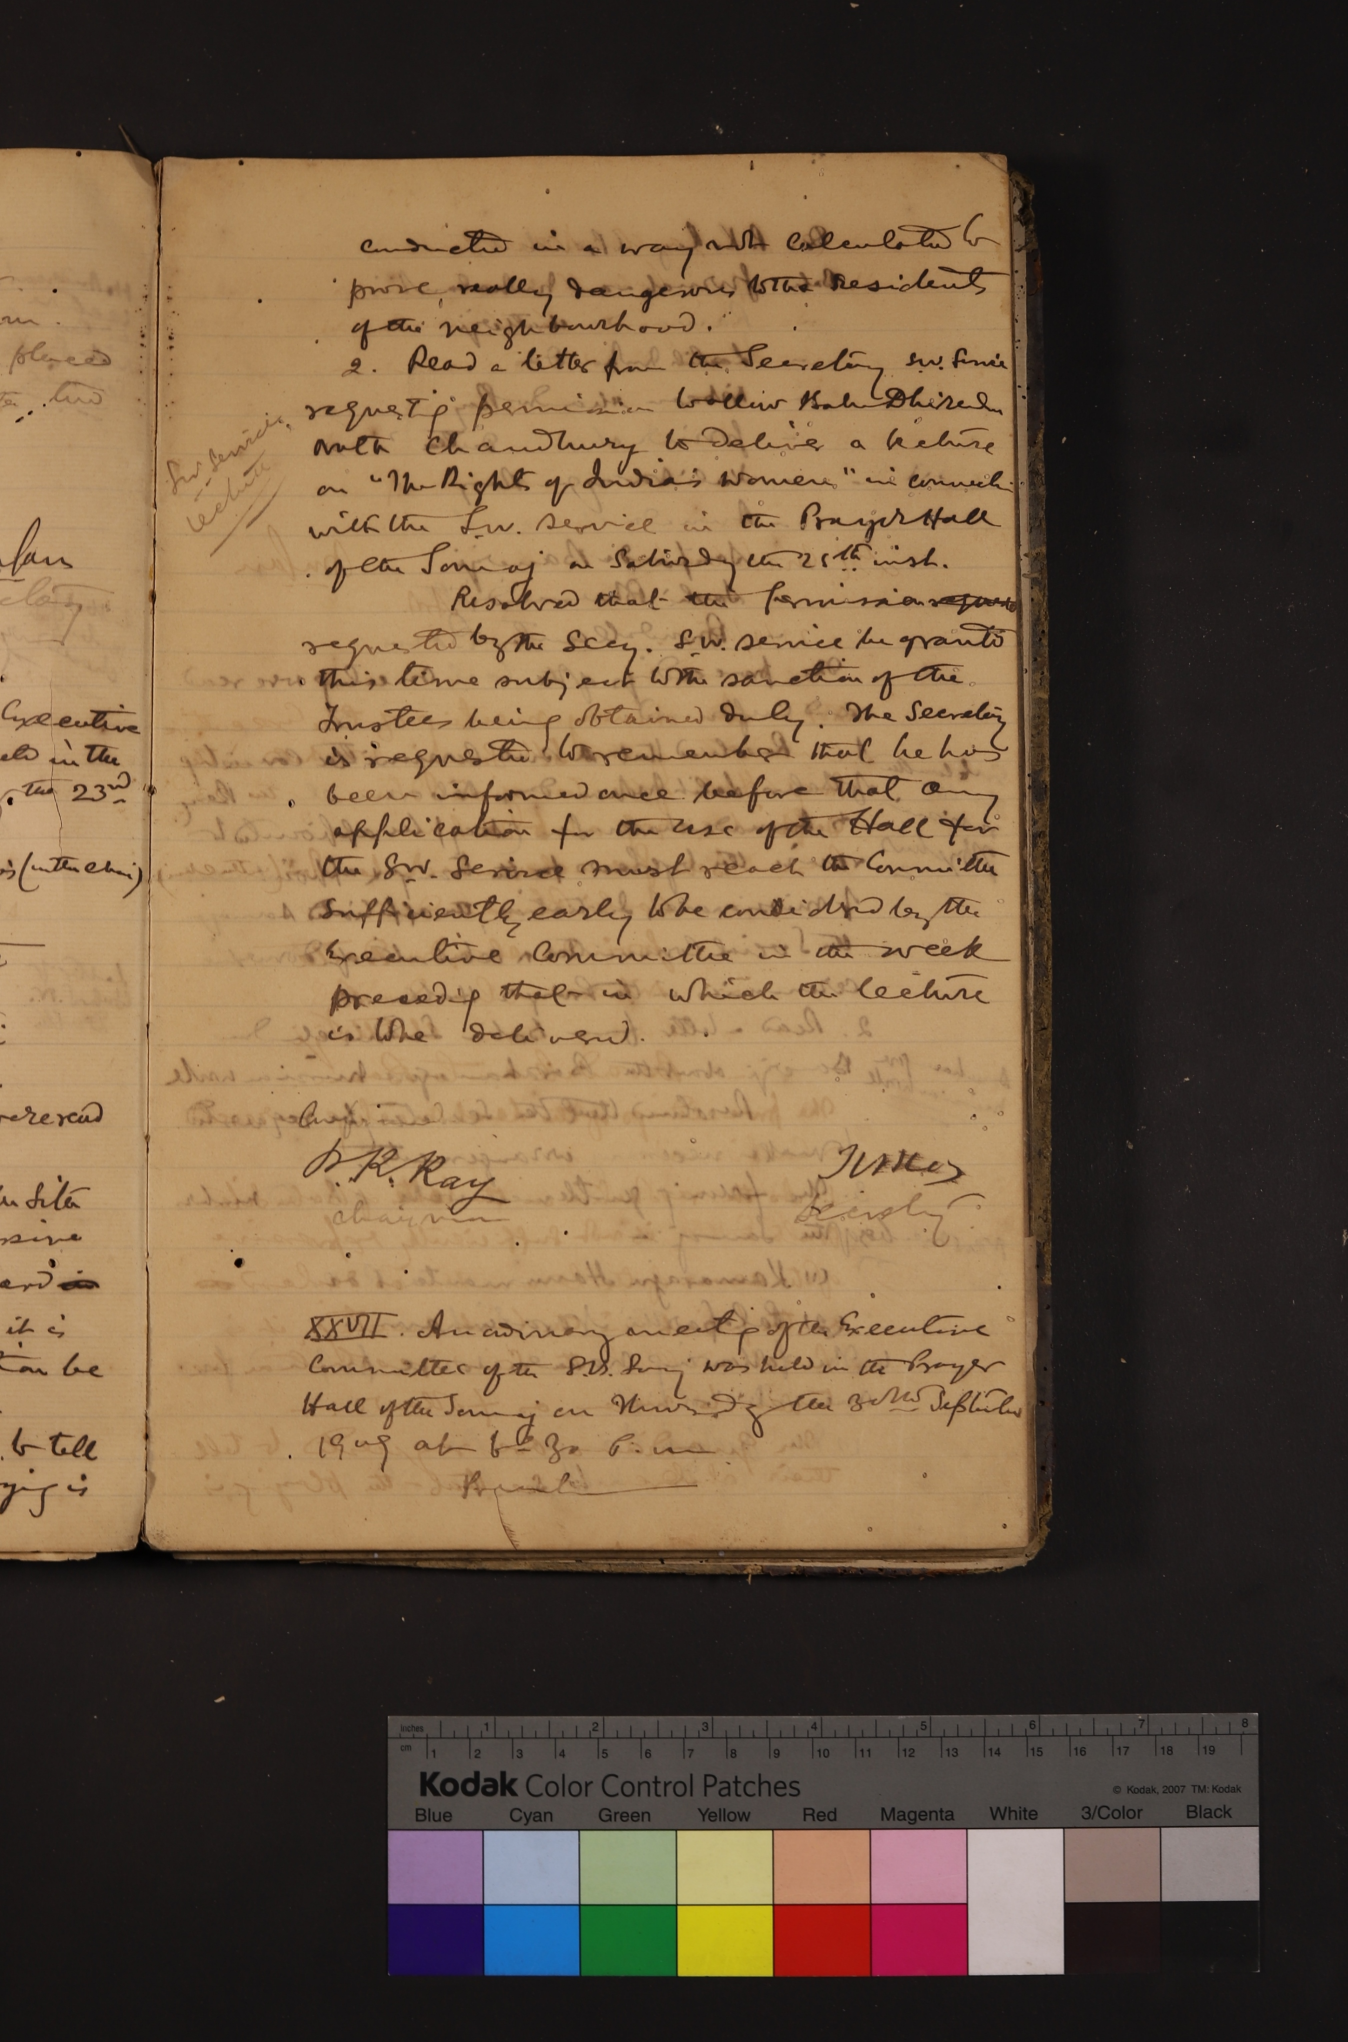 conducted in a way not calculated to
prove really dangerous to the residents
of the neighbourhood.
2. Read a letter from the Secretary S.W. Service
requesting permission to allow Babu Dhirendra
Nath Chaudhury to deliver a lecture
on "The Rights of India's Women" in connection
with the S.W. service in the Prayer Hall
of the Somaj on Saturday the 25th inst.
S.W. Service
lecture
Resolved that the permission
requested by the Secy. S.W. service be granted
this time subject to the sanction of the
Trustees being obtained duly. The Secretary
is requested to remember that he has
been informed once before that any
application for the use of the Hall for
the S.W. Service must reach the Committee
sufficiently early to be considered by the
Executive Committee in the week
preceding that in which the lecture
is to be delivered.
P. K. Ray
Chairman
Secretary
XXVII. An ordinary meeting of the Executive
Committee of the S.B. Somaj was held in the Prayer
Hall of the Somaj on Thursday the 30th September
1909 at 6-30 P.m
Present
placed
the two
Executive
held in the
, the 23rd
(in the chair)
were read
it is
to tell
is
inches 1 2 3 4 5 6 7 8
cm 1 2 3 4 5 6 7 8 9 10 11 12 13 14 15 16 17 18 19
Kodak Color Control Patches
© Kodak, 2007 TM: Kodak
Blue Cyan Green Yellow Red Magenta White 3/Color Black